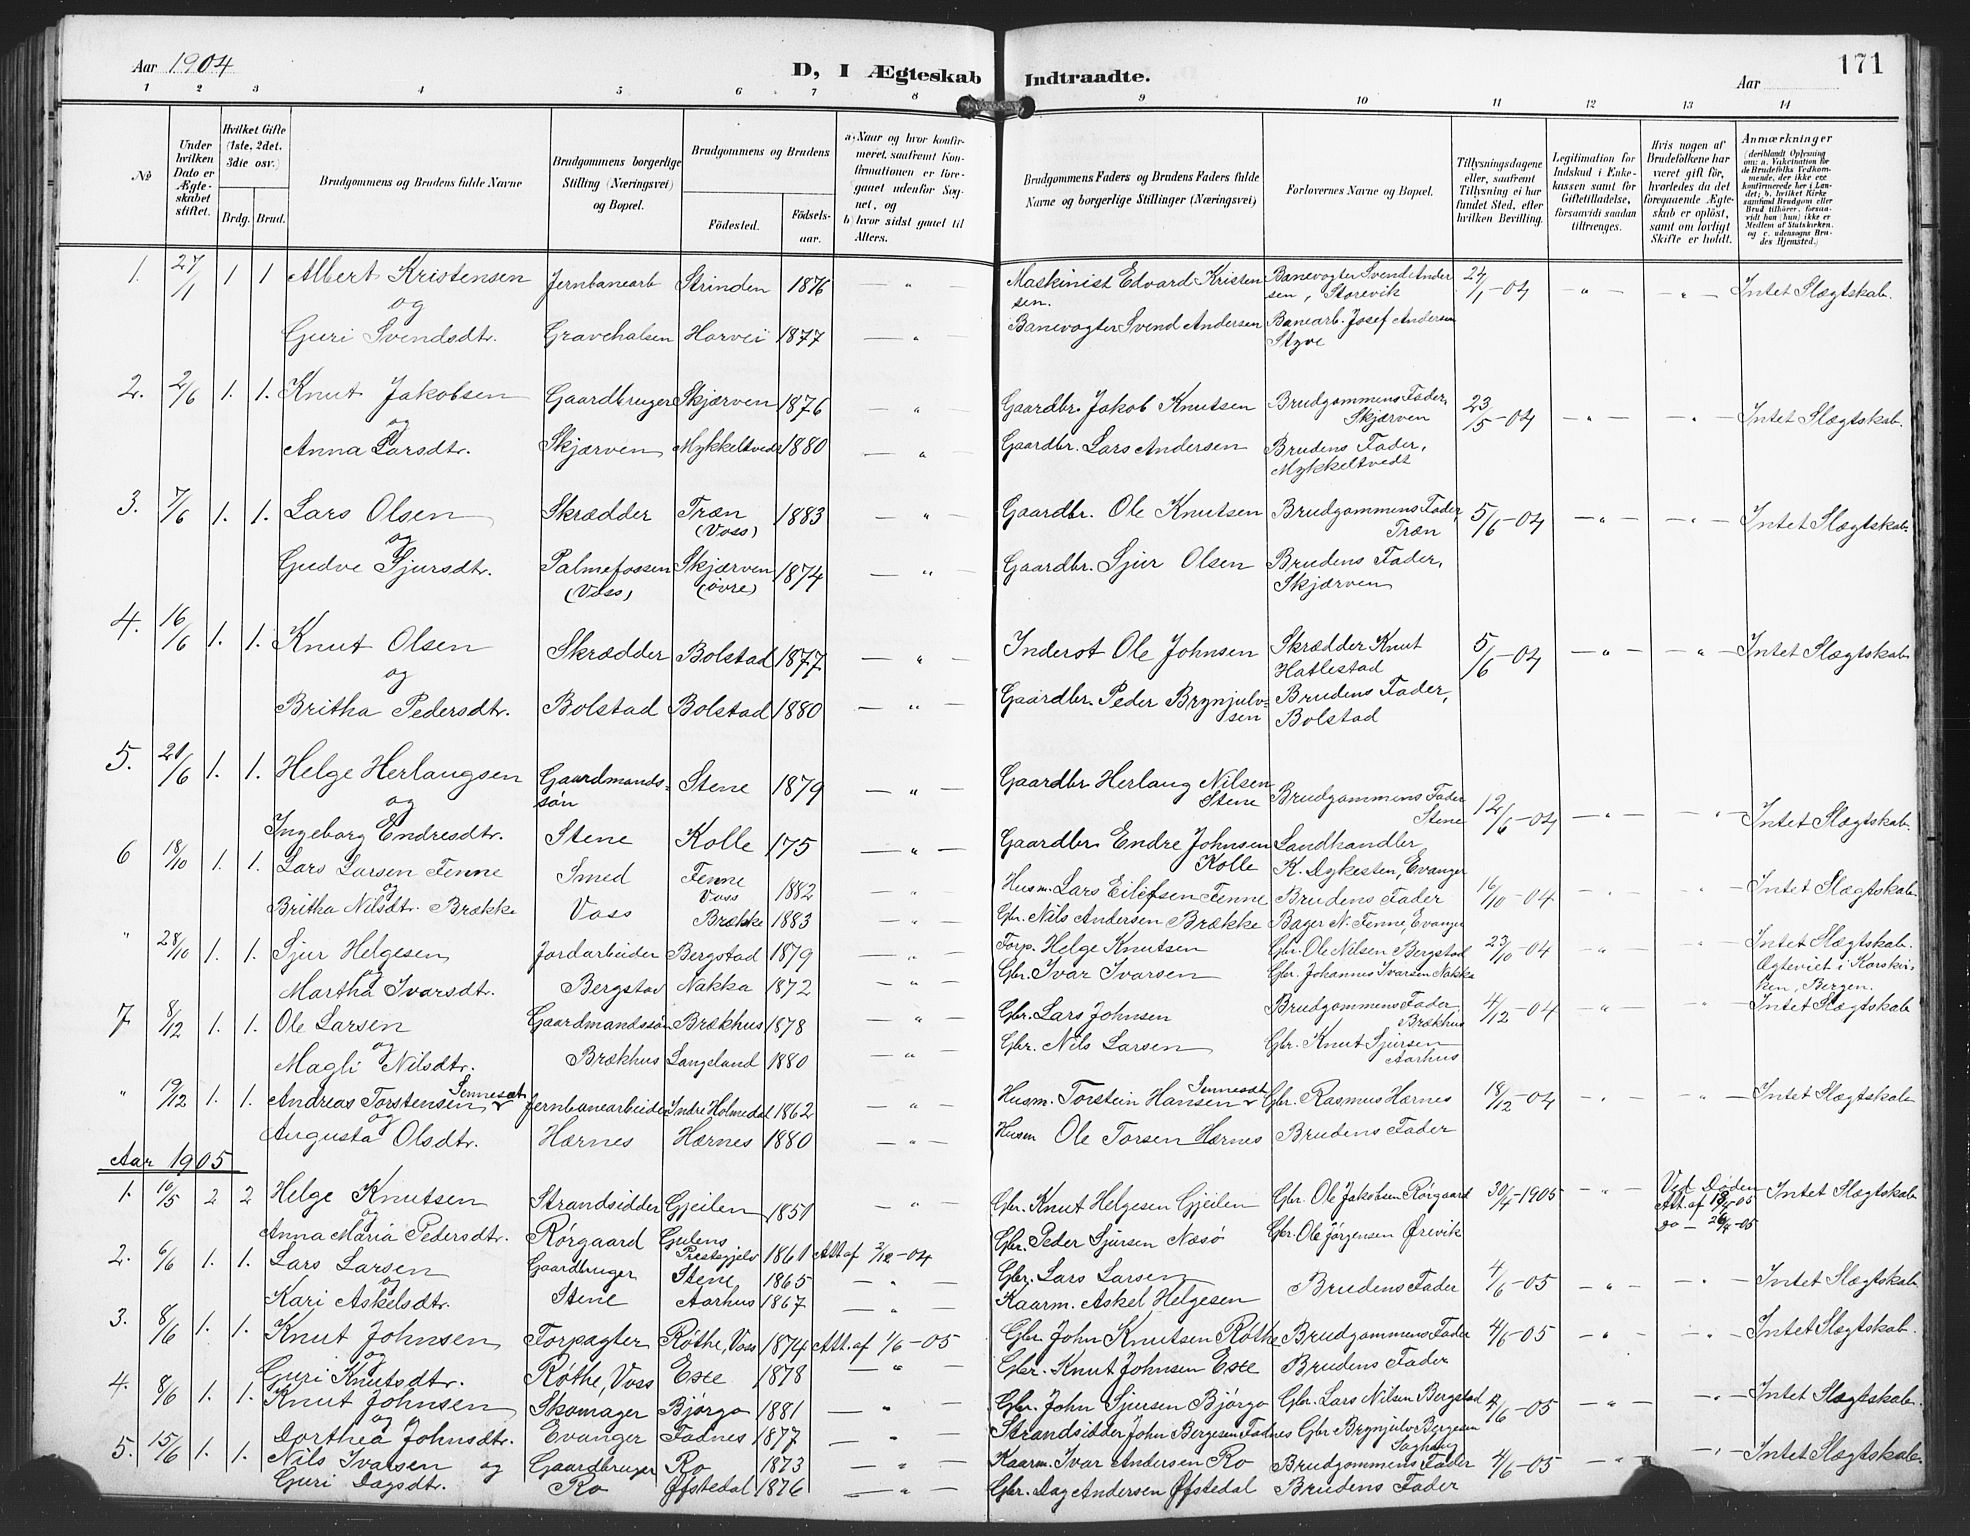 Aar 1904
D, I Ægteskab Indtraadte.
Aar
171
1 2 3 4 5 6 7 8 9 10 11 12 13 14
No
Under hvilken Dato er Ægteskabet stiftet.
Hvilket Gifte (1ste, 2det, 3die osv.)
Brdg. Brud.
Brudgommens og Brudens fulde Navne
Brudgommens borgerlige Stilling (Næringsvei) og Bopæl.
Brudgommens og Brudens
Fødested.
Fødselsaar.
a) Naar og hvor konfirmeret, saafremt Konfirmationen er foregaaet udenfor Sognet, og
b) hvor sidst gaaet til Alters.
Brudgommens Faders og Brudens Faders fulde Navne og borgerlige Stillinger (Næringsvei)
Forlovernes Navne og Bopæl.
Tillysningsdagene eller, saafremt Tillysning ei har fundet Sted, efter hvilken Bevilling.
Legitimation for Indskud i Enkekassen samt for Giftetilladelse, forsaavidt saadan tiltrænges.
Hvis nogen af Brudefolkene har været gift før, hvorledes da det foregaaende Ægteskab er opløst, samt om lovligt Skifte er holdt.
Anmærkninger (deriblandt Oplysning om: a. Vakcination for de Brudefolks Vedkommende, der ikke ere konfirmerede her i Landet; b. hvilket Kirkesamfund Brudgom eller Brud tilhører, forsaavidt han (hun) ikke er Medlem af Statskirken, og c. udensogns Brudes Hjemsted.)
1. 27/1 1 1 Albert Kristensen Jernbanearb Strinden 1876 — " — Maskinist Edvard Kristensen. Banevogter Svend Andersen, Storevik 24/1-04 — " — — " — Intet Slægtskab.
og
Guri Svendsdtr. Gravehalsen Horvei 1877 — " — Banevogter Svend Andersen Banearb. Josef Andersen Styve
2. 2/6 1. 1. Knut Jakobsen Gaardbruger Skjærven 1876 — " — Gaardbr. Jakob Knutsen Brudgommens Fader, Skjærven 23/5-04 — " — — " — Intet Slægtskab.
og
Anna Larsdtr. Skjærven Mykkeltvedt 1880 — " — Gaardbr. Lars Andersen Brudens Fader, Mykkeltvedt
3. 7/6 1. 1. Lars Olsen Skrædder Træn (Voss) 1883 — " — Gaardbr. Ole Knutsen Brudgommens Fader, Træn 5/6-04 — " — — " — Intet Slægtskab.
og
Gudve Sjursdtr. Palmefossen (Voss) Skjærven (øvre) 1874 — " — Gaardbr. Sjur Olsen Brudens Fader, Skjærven
4. 16/6 1. 1. Knut Olsen Skrædder Bolstad 1877 — " — Inderst Ole Johnsen Skrædder Knut Hatlestad 5/6-04 — " — — " — Intet Slægtskab
og
Britha Pedersdtr. Bolstad Bolstad 1880 — " — Gaardbr. Peder Brynjulvsen Brudens Fader, Bolstad
5. 21/6 1. 1. Helge Herlaugsen Gaardmandssøn Stene 1879 — " — Gaardbr Herlaug Nilsen Stene Brudgommens Fader Stene 12/6-04 — " — — " — Intet Slægtskab.
og
Ingeborg Endresdtr. Stene Kolle 175 — " — Gaardbr. Endre Johnsen Kolle Landhandler K. Dykesten, Evanger
6 18/10 1. 1. Lars Larsen Fenne Smed Fenne Voss 1882 — " — Husm. Lars Eilefsen Fenne Brudens Fader 16/10-04 — " — — " — Intet Slægtskab
og
Britha Nilsdtr. Brække Voss Brække 1883 — " — Gbr. Nils Andersen Brække Bager N. Fenne, Evanger
" 28/10 1. 1. Sjur Helgesen Jordarbeider Bergstad 1879 — " — Forp. Helge Knutsen Gbr. Ole Nilsen Bergstad 23/10-04 — " — — " — Intet Slægtskab. Ægteviet i Korskirken, Bergen.
og
Martha Ivarsdtr. Bergstad Nakka 1872 — " — Gbr. Ivar Ivarsen Gbr. Johannes Ivarsen Nakka
7 8/12 1. 1. Ole Larsen Gaardmandssøn Brækhus 1878 — " — Gbr. Lars Johnsen Brudgommens Fader Brækhus 4/12-04 — " — " — Intet Slægtskab
og
Magli Nilsdtr. Brækhus Langeland 1880 — " — Gbr. Nils Larsen Gbr. Knut Sjursen Aarhus
" 19/12 1. 1. Andreas Torstensen Sennesæt Jernbanearbeider Indre Holmedal 1862 — " — Husm. Torstein Hansen Sennesæt Gbr. Rasmus Hærnes 18/12-04 — " — — " — Intet Slægtskab
og
Augusta Olsdtr. Hærnes Hærnes 1880 — " — Husm Ole Torsen Hærnes Brudens Fader
Aar 1905
1. 10/5 2 2 Helge Knutsen Strandsidder Gjeilen 1851 — " — Gbr. Knut Helgesen Gjeilen Gbr. Ole Jakobsen Rørgaard 30/4-1905 — " — Ved Døden Att. af Intet Slægtskab
og
Anna Maria Pedersdtr. Rørgaard Gulens Prestegjeld 1861 Att af 2/12-04 Gbr. Peder Sjursen Næsø Gbr. Ole Jørgensen Ørevik
2. 6/6 1. 1. Lars Larsen Gaardbruger Stene 1865 — " — Gbr. Lars Larsen Brudens Fader 4/6-05 — " — — " — Intet Slægtskab
og
Kari Askelsdtr. Stene Aarhus 1867 — " — Kaarm. Askel Helgesen
3. 8/6 1. 1. Knut Johnsen Forpagter Røthe, Voss 1874 Att. af 1/6-05 Gbr. John Knutsen Røthe Brudgommens Fader 4/6-05 — " — — " — Intet Slægtskab.
og
Guri Knutsdtr. Røthe, Voss Exe 1878 — " — Gbr. Knut Johnsen Exe Brudens Fader
4. 8/6 1. 1. Knut Johnsen Skomager Bjørgo 1881 — " — Gbr. John Sjursen Bjørgo Gbr. Lars Nilsen Bergstad 4/6-05 — " — — " — Intet Slægtskab.
og
Dorthea Johnsdtr. Evanger Fadnes 1877 — " — Strandsidder John Bergesen Fadnes Gbr Brynjulv Bergesen
5. 15/6 1. 1. Nils Ivarsen og Gaardbruger Ro 1873 — " — Kaarm. Ivar Andersen Ro Brudgommens Fader 4/6-05 — " — — " — Intet Slægtskab.
Guri Dagsdtr. Ro Øfstedal 1876 — " — Gbr. Dag Andersen Øfstedal Brudens Fader